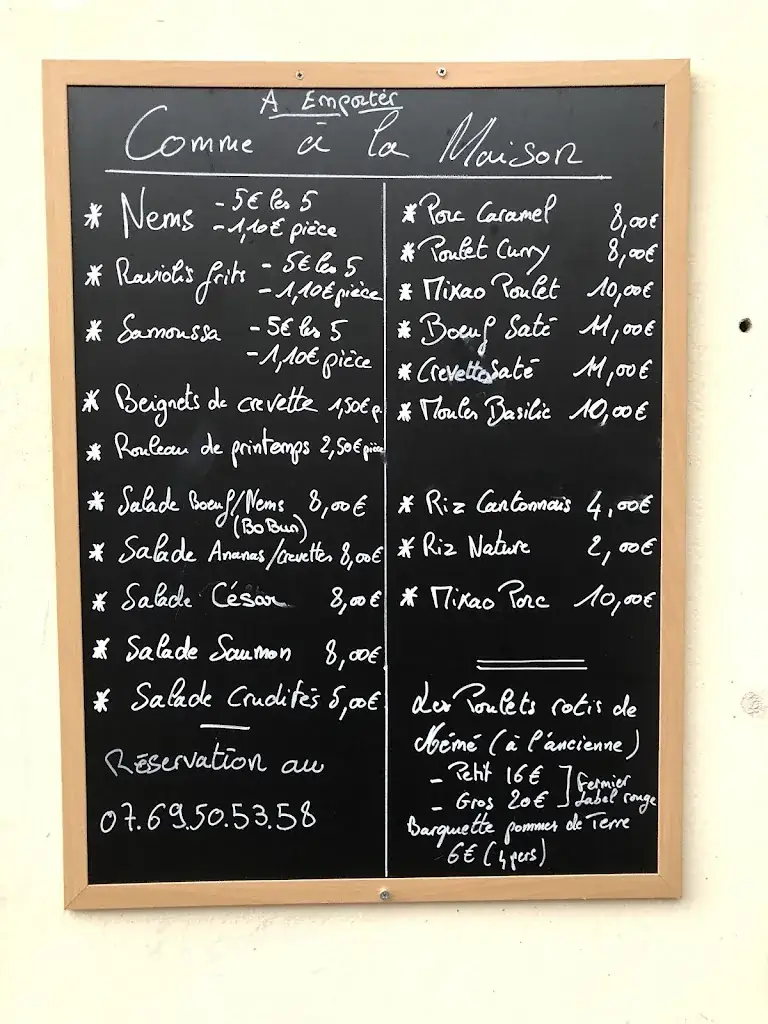 A Emporter
Comme à la Maison
* Nems - 5€ les 5
- 1,10€ pièce
* Raviolis frits - 5€ les 5
- 1,10€ pièce
* Samoussa - 5€ les 5
- 1,10€ pièce
* Beignets de crevette 1,50€ p.
* Rouleau de printemps 2,50€ pièce
* Salade Boeuf/Nems 8,00€
(BoBun)
* Salade Ananas/crevettes 8,00€
* Salade César 8,00€
* Salade Saumon 8,00€
* Salade Crudités 5,00€
Réservation au
07.69.50.53.58
* Porc Caramel 8,00€
* Poulet Curry 8,00€
* Mixao Poulet 10,00€
* Boeuf Saté 11,00€
* Crevette Saté 11,00€
* Moules Basilic 10,00€
* Riz Cantonnais 4,00€
* Riz Nature 2,00€
* Mixao Porc 10,00€
Les Poulets rotis de
Mémé (à l'ancienne)
- Petit 16€ ] Fermier
- Gros 20€ ] Label rouge
Barquette pommes de Terre
6€ (4 pers)